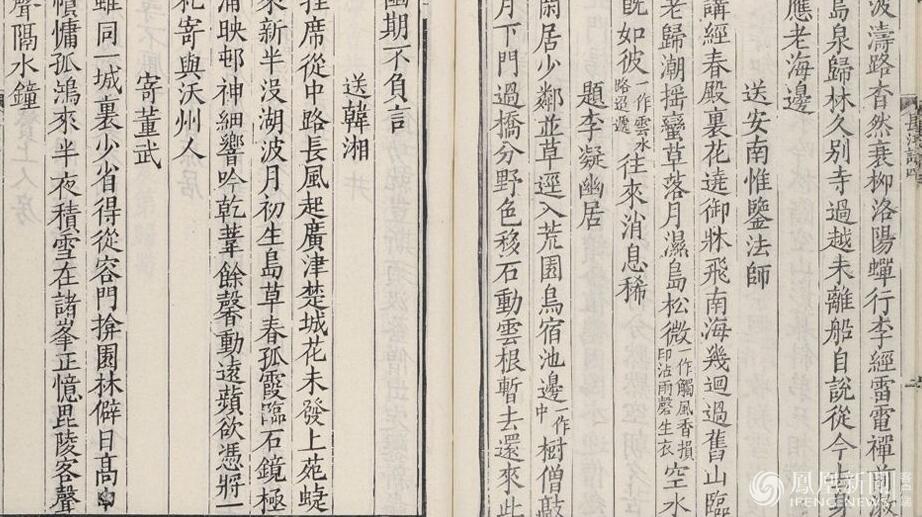 波濤路杳然衰柳洛陽蟬行李經雷電禪前漱
島泉歸林久別寺過越未離船自說從今去
應老海邊
送安南惟鑒法師
講經春殿裏花遶御牀飛南海幾迴過舊山臨
老歸潮搖蠻草落月濕島松微一作觸風香損印沾雨磬生衣空水
既如彼一作雲水路迢遞往來消息稀
題李凝幽居
閑居少鄰並草逕入荒園鳥宿池邊一作中樹僧敲
月下門過橋分野色移石動雲根暫去還來此
幽期不負言
送韓湘
挂席從中路長風起廣津楚城花未發上苑蜨
來新半没湖波月初生島草春孤霞臨石鏡極
浦映邨神細響吟乾葦餘馨動遠蘋欲憑將一
札寄與沃州人
寄董武
雖同一城裏少省得從容門掩園林僻日高巾
幘慵孤鴻來半夜積雪在諸峯正憶毘陵客聲
聲隔水鐘
鳳凰新聞
IFENGNEWS.COM